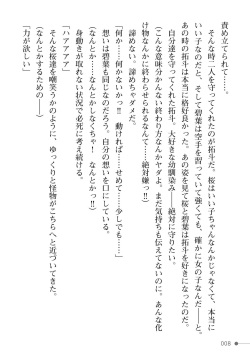 責め立てられて……。
　そんな時二人を守ってくれたのが拓斗だった。桜はいい子ちゃんなんかじゃなくて、本当に
いい子なのだと、そして碧葉は空手を習っていて強くても、確かに女の子なんだ――と。
あの時の拓斗は本当に格好良かった。あの姿を見て桜と碧葉は拓斗を好きになったのだ。
自分達を守ってくれた拓斗。大好きな幼馴染み――絶対に守りたい。
（こんな意味分かんない状況で終わりなんて……まだ気持ちも伝えてないのに、あんな化
け物なんかに終わらせられるなんてヤダよ。……絶対嫌っ‼）
諦めない。諦めちゃダメだ。
（何か……何かないかっ‼　動ければ……せめて……少しでも……）
想いは碧葉も同じなのだろう。自分の想いを口にしている。
（なんとか……なんとかしなくちゃ！　なんとかっ‼）
身動きが取れない状況で必死に考え続ける。
「ハアアアア」
　そんな桜達を嘲笑うかのように、ゆっくりと怪物がこちらへと近づいてきた。
（なんとかするための――）
「力が欲しい」
008